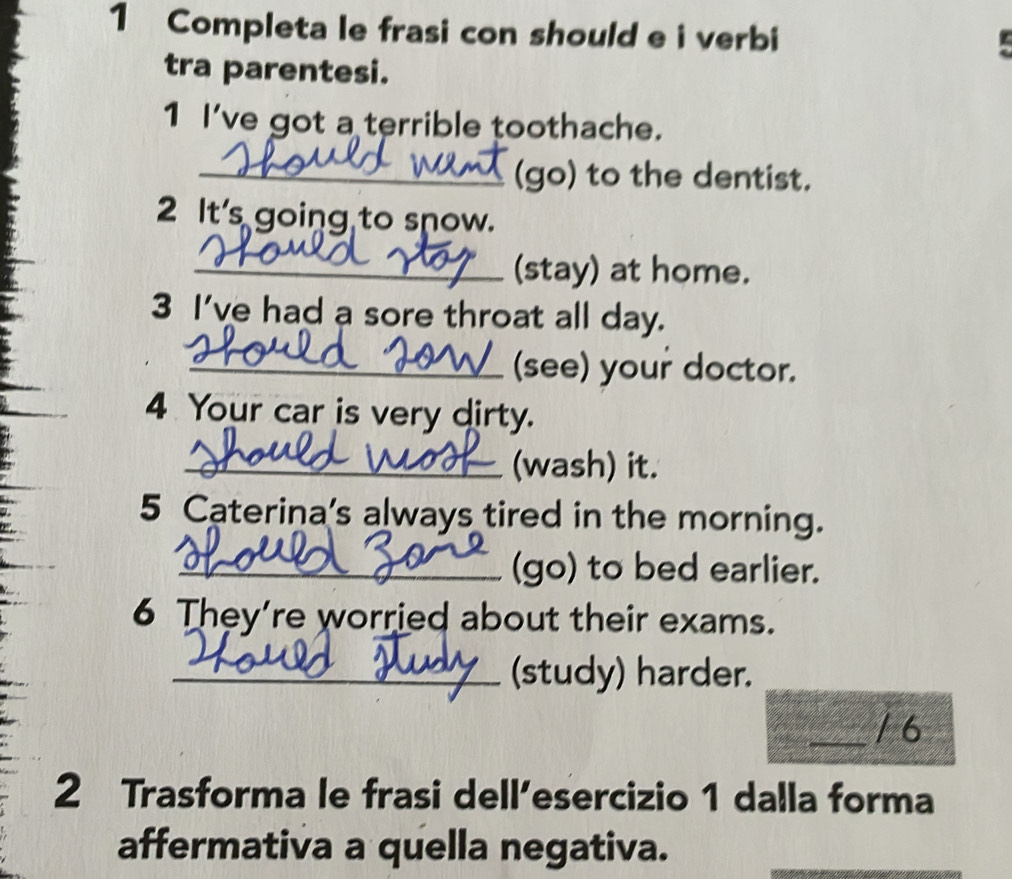 1 Completa le frasi con should e i verbi
tra parentesi.
1 I've got a terrible toothache.
should went (go) to the dentist.
2 It's going to snow.
should stay (stay) at home.
3 I've had a sore throat all day.
should saw (see) your doctor.
4 Your car is very dirty.
should wash (wash) it.
5 Caterina's always tired in the morning.
should gone (go) to bed earlier.
6 They're worried about their exams.
should study (study) harder.
/ 6
2 Trasforma le frasi dell'esercizio 1 dalla forma
affermativa a quella negativa.